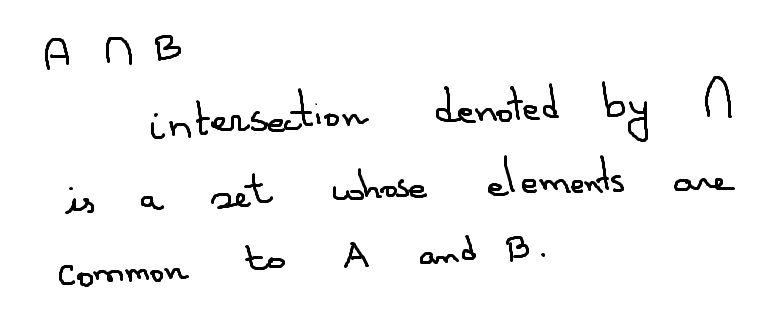 A ∩ B
intersection denoted by ∩
is a set whose elements are
common to A and B.